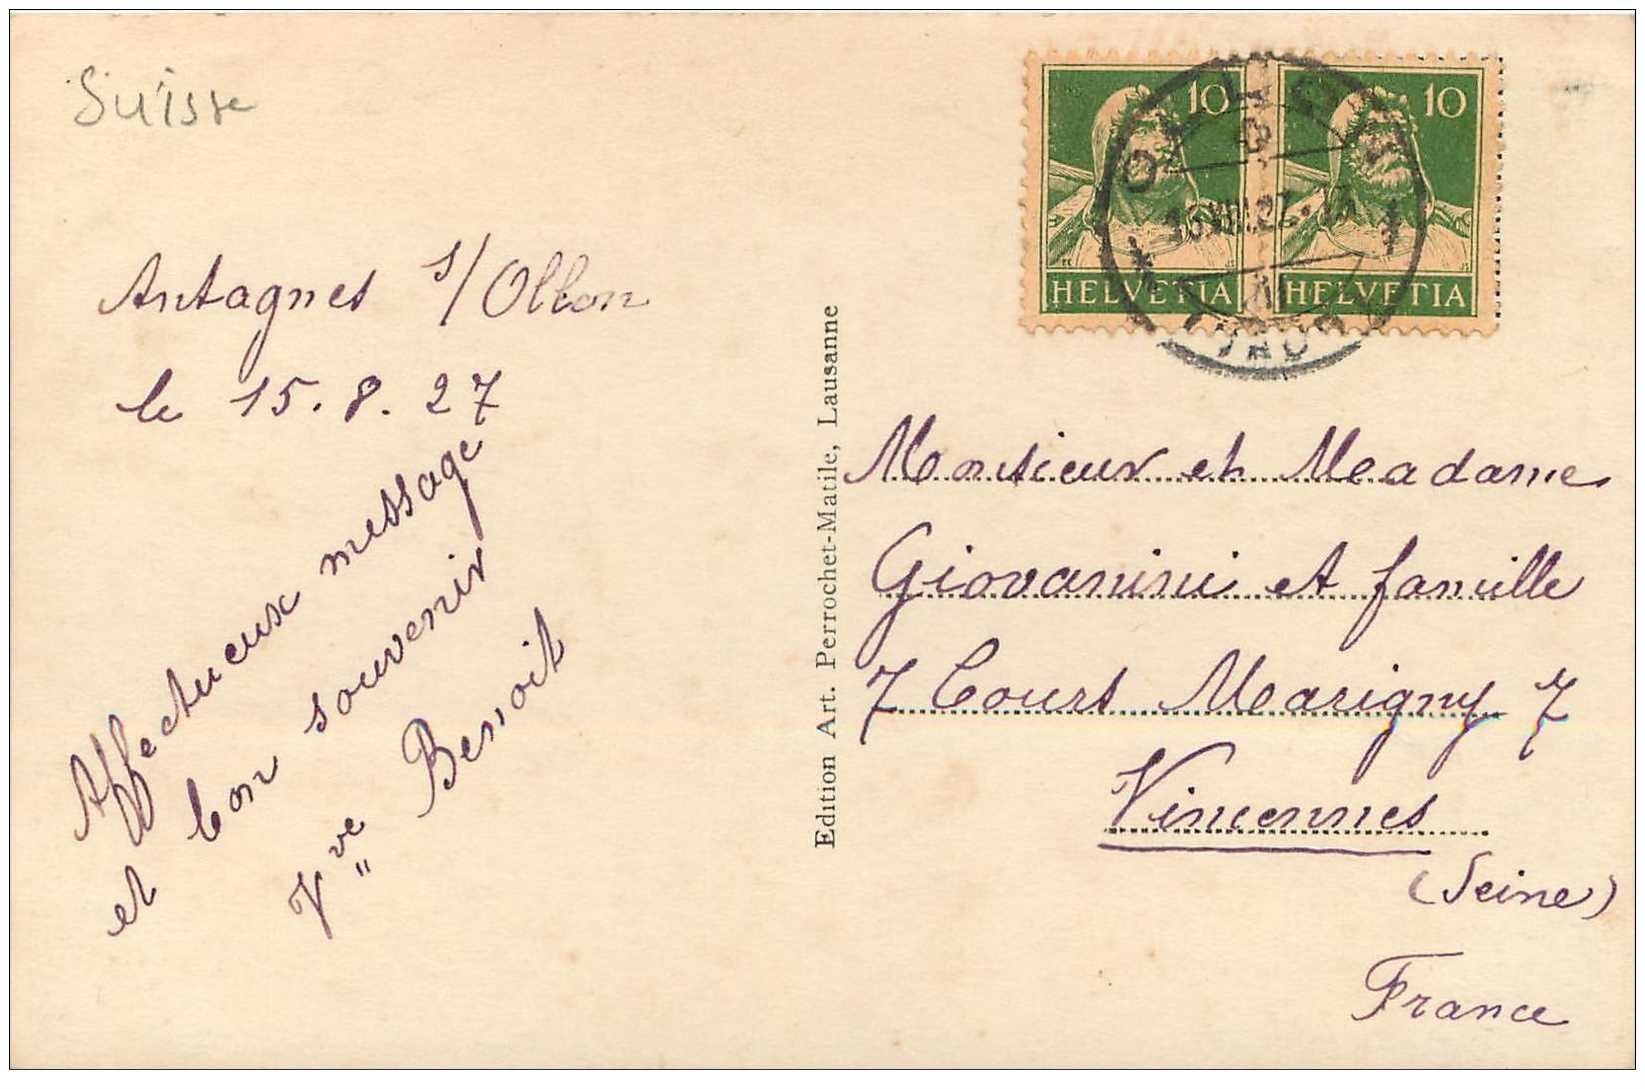 Suisse
Antagnes s/Ollon
le 15.8.27
Affectueux message
et bon souvenir
Vve Benoit
Edition Art. Perrochet-Matile, Lausanne
10
10
HELVETIA
HELVETIA
Monsieur et Madame
Giovanini et famille
7 Cours Marigny 7
Vincennes
(Seine)
France